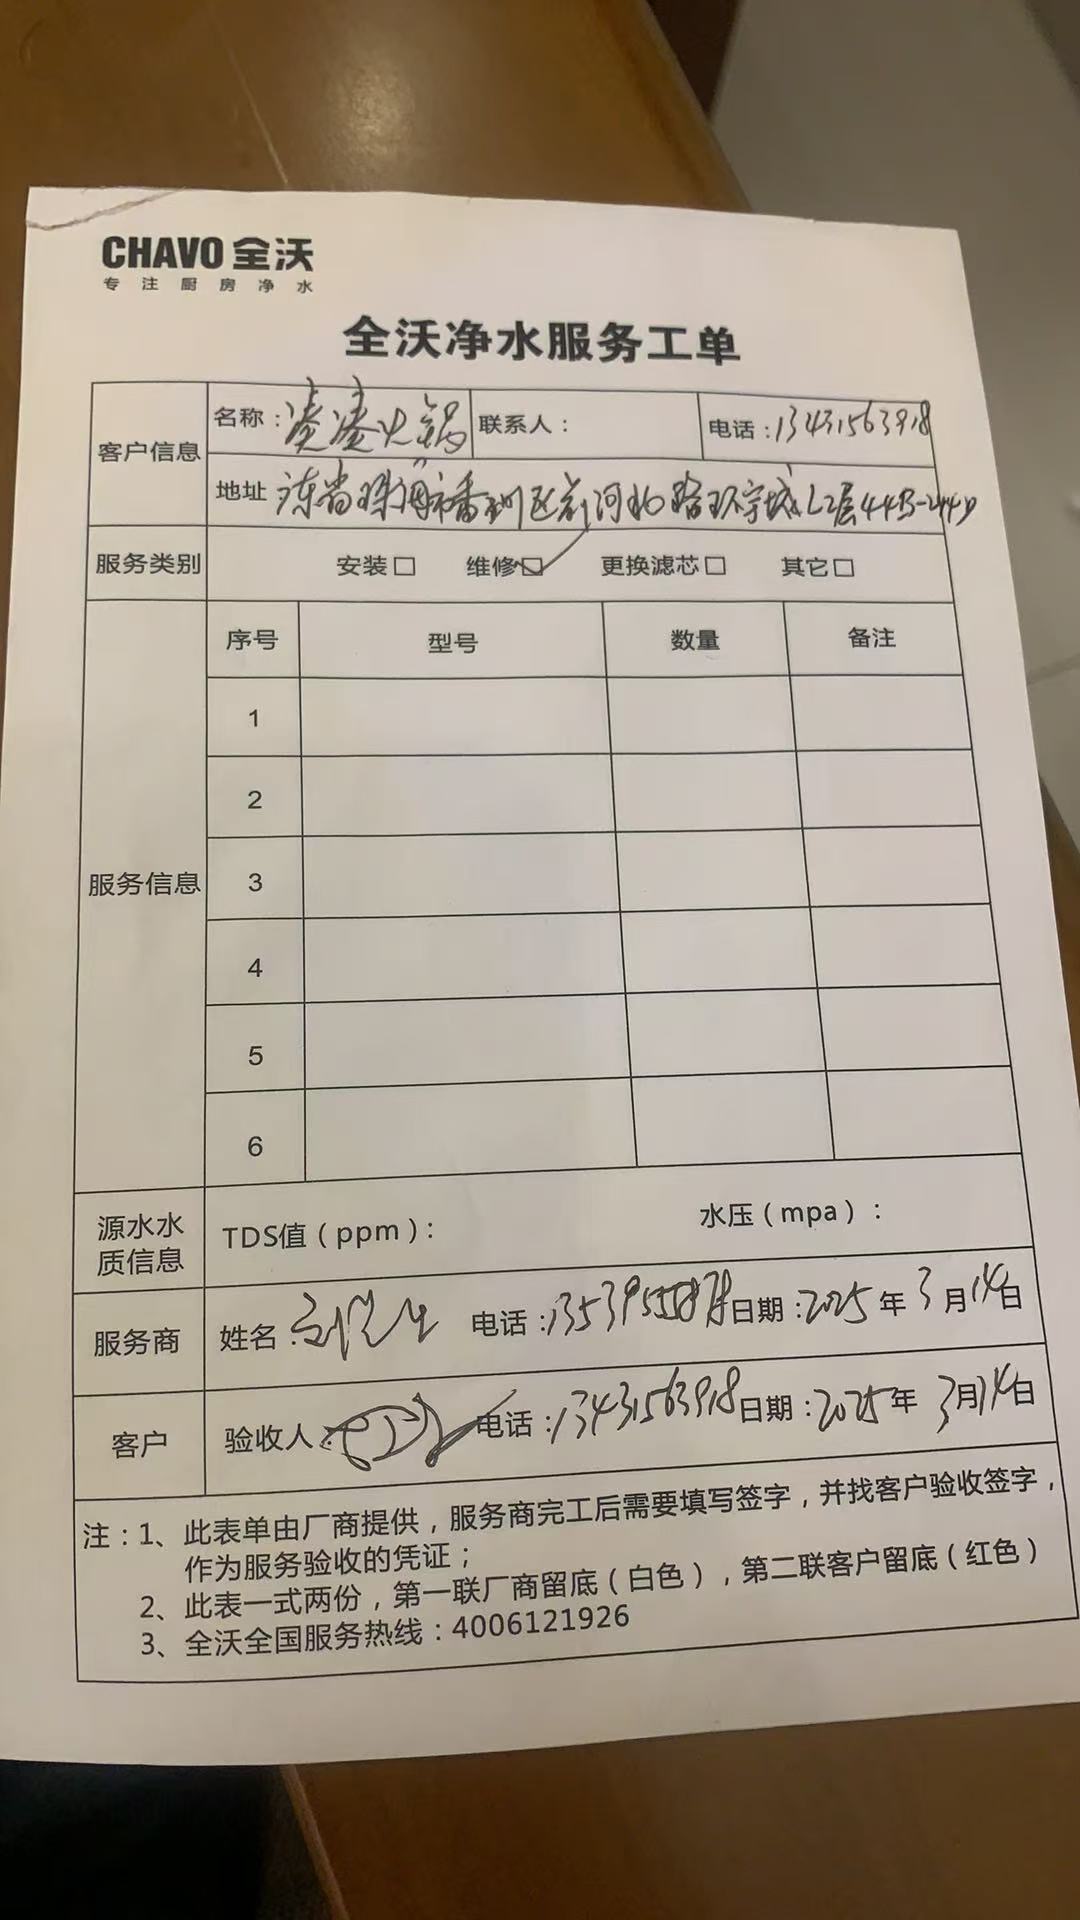 CHAVO 全沃
专注厨房净水
全沃净水服务工单
客户信息
名称：凑凑火锅 联系人： 电话：13431563918
地址 东省珠海市香洲区前河北路环宇城L2层44B-244D
服务类别 安装□ 维修☑ 更换滤芯□ 其它□
服务信息
序号 型号 数量 备注
1
2
3
4
5
6
源水水质信息 TDS值（ppm）： 水压（mpa）：
服务商 姓名： 电话： 日期：2025年3月14日
客户 验收人： 电话：13431563918 日期：2025年3月14日
注：1、此表单由厂商提供，服务商完工后需要填写签字，并找客户验收签字，
作为服务验收的凭证；
2、此表一式两份，第一联厂商留底（白色），第二联客户留底（红色）
3、全沃全国服务热线：4006121926